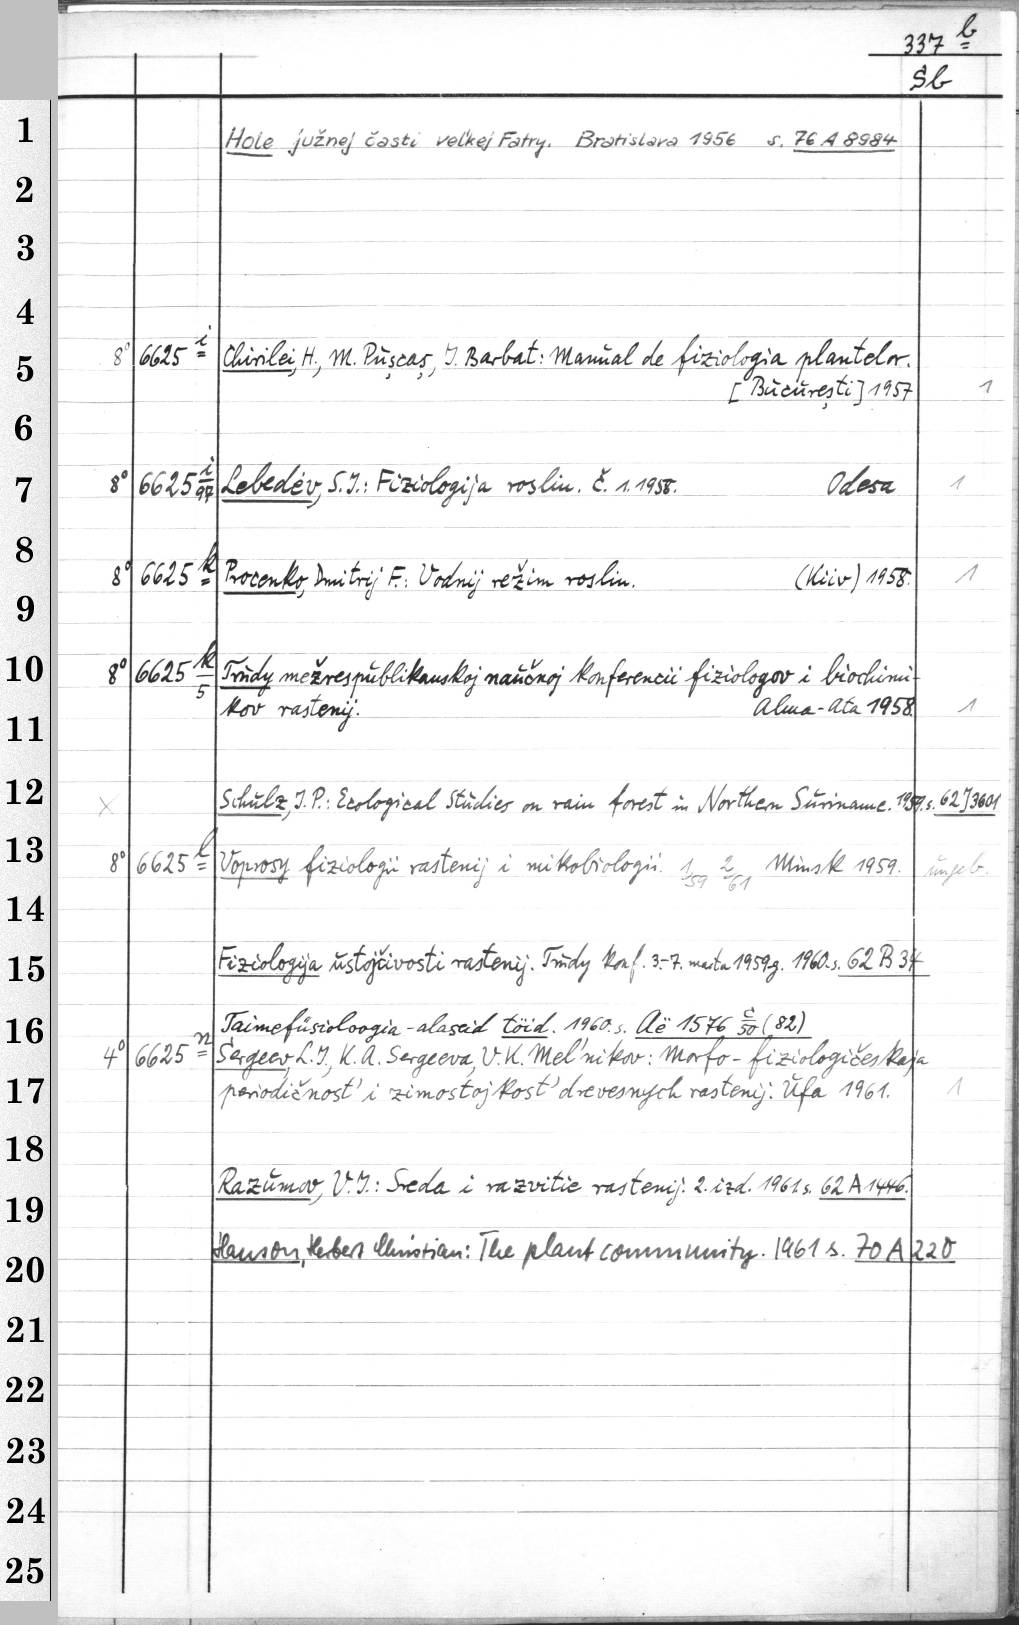 337 b
Sb
1
Hole južnej časti veľkej Fatry. Bratislava 1956 s. 76 A 8984
2
3
4
5
8° 6625 i Chirilei, H., M. Pușcaș, J. Barbat: Manual de fiziologia plantelor.
[București] 1957 1
6
7
8° 6625 i Lebedév, S.J.: Fiziologija roslin. Č. 1. 1958. Odesa 1
8
8° 6625 k Procenko, Dmitrij F.: Vodnij režim roslin. (Kiiv) 1958. 1
9
10
8° 6625 k/5 Trudy mežrespublikanskoj naučnoj konferencii fiziologov i biochimi-
kov rastenij. Alma-Ata 1958. 1
11
12
× Schulz, J.P.: Ecological Studies on rain forest in Northern Suriname. 1959. s. 62 J 3601
13
8° 6625 l Voprosy fiziologii rastenij i mikobiologii. 1/59 2/61 Minsk 1959. ungeb.
14
15
Fiziologija ustojčivosti rastenij. Trudy konf. 3.-7. marta 1959 g. 1960. s. 62 B 34
16
Taimefüsioloogia-alaseid töid. 1960. s. Aë 1576 č/50 (82)
4° 6625 n Sergeev, L.J., K.A. Sergeeva, V.K. Mel'nikov: Morfo-fiziologičeskaja
17
periodičnost' i zimostojkost' drevesnych rastenij. Ufa 1961. 1
18
19
Razumov, V.J.: Sreda i razvitie rastenij. 2. izd. 1961. s. 62 A 1446.
20
Hanson, Herbert Christian: The plant community. 1961 s. 70 A 220
21
22
23
24
25